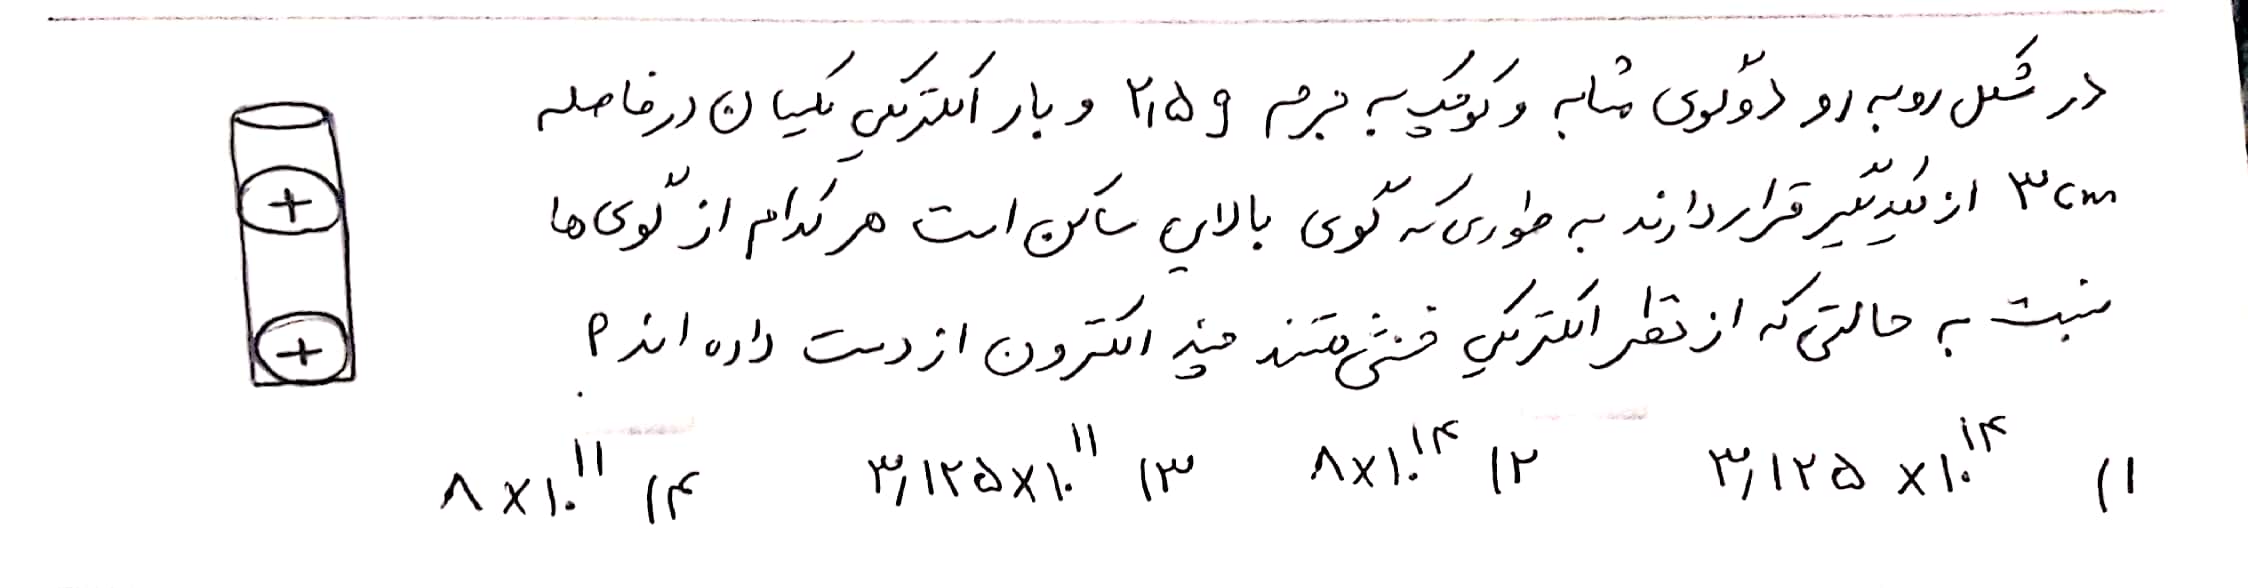 در شکل روبه رو دو گوی مشابه و کوچک به جرم ۲٫۵g و بار الکتریکی یکسان در فاصله
۳cm از یکدیگر قرار دارند به طوری که گوی بالایی ساکن است هر کدام از گوی ها
نسبت به حالتی که از نظر الکتریکی خنثی هستند چند الکترون از دست داده اند؟
۱) ۳٫۱۲۵ × ۱۰^۱۴ ۲) ۸×۱۰^۱۴ ۳) ۳٫۱۲۵×۱۰^۱۱ ۴) ۸×۱۰^۱۱
+
+